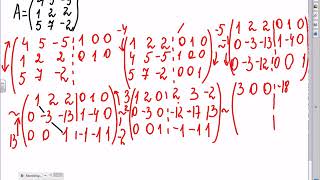 A = ( 4 5 -5
1 2 2
5 7 -2 )
( 4 5 -5 | 1 0 0
1 2 2 | 0 1 0
5 7 -2 | )
-4 ( 1 2 2 | 0 1 0
4 5 -5 | 1 0 0
5 7 -2 | ) -5
( 1 2 2 | 0 1 0
0 -3 -13 | 1 -4 0
0 -3 -12 | 0 )
~ ( 1 2 2 | 0 1 0
0 -3 -13 | 1 -4 0
0 0 1 | -1 -1 1 ) 13 -2
~ 3 ( 1 2 0 | 2 3 -2
0 -3 0 | -12 -17 13
0 0 1 | -1 -1 1 )
~ ( 3 0 0 | -18